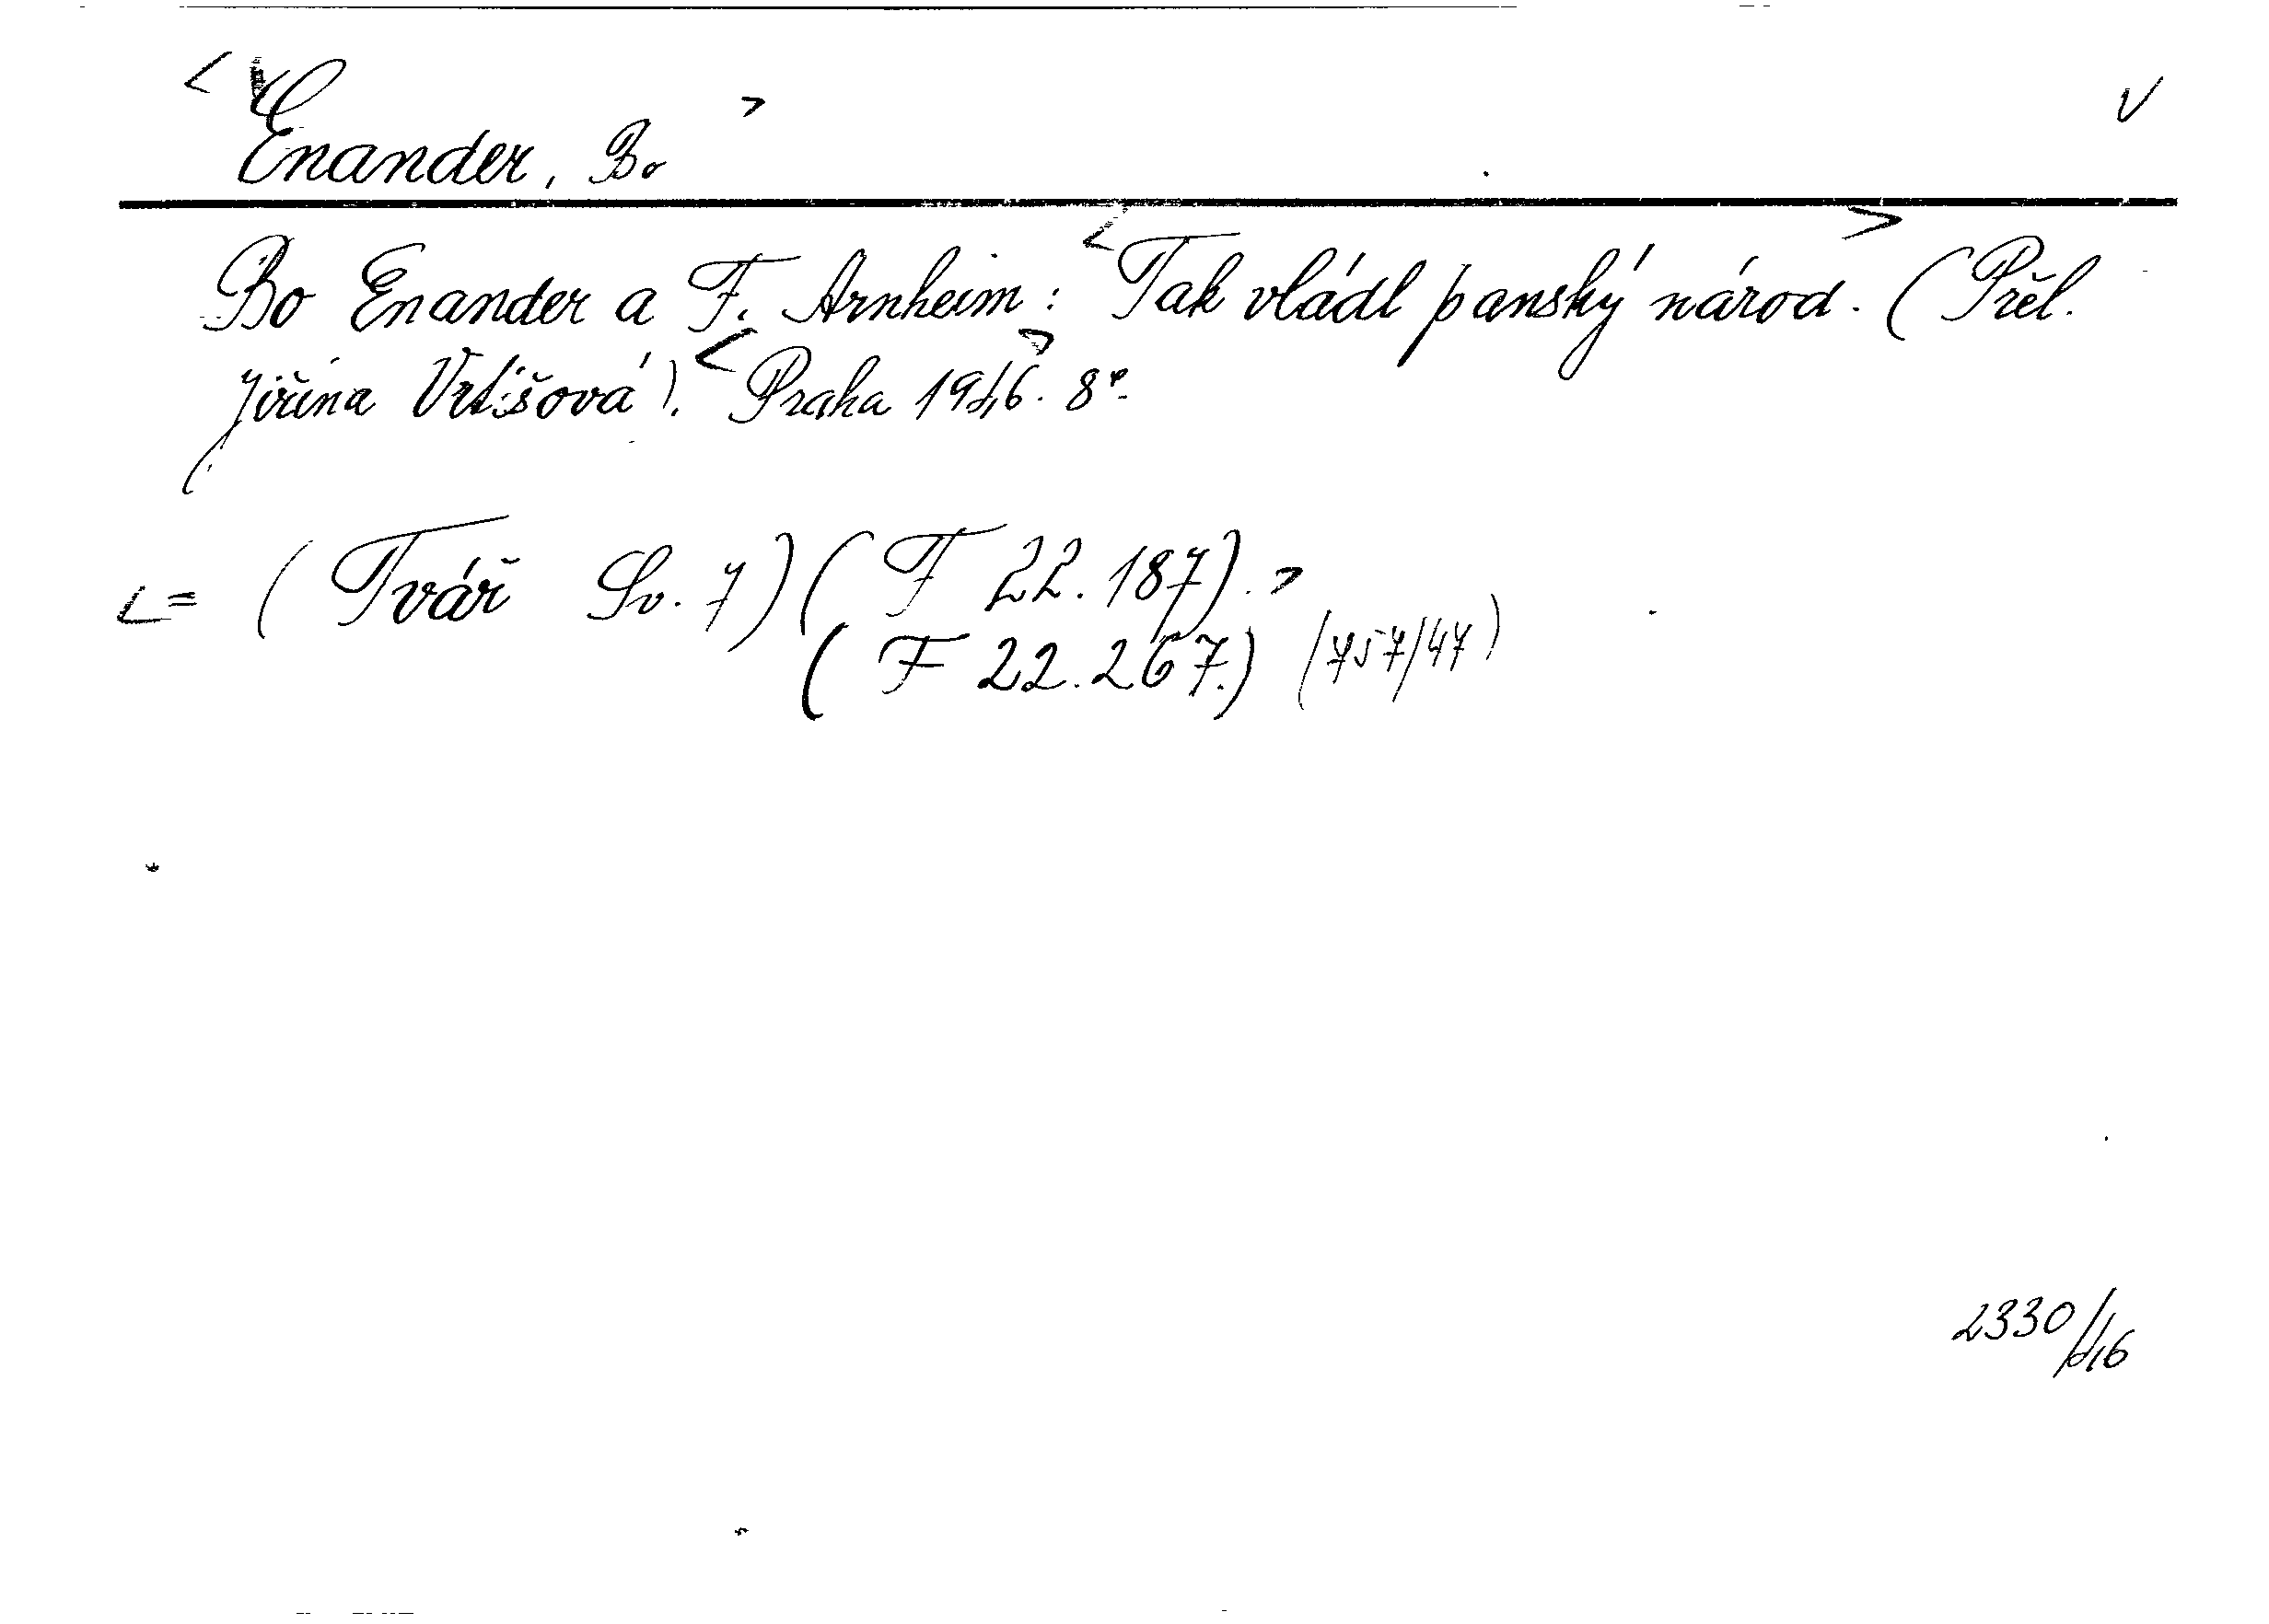 < Enander, Bo > V
Bo Enander a F. Arnheim: <Tak vládl panský národ.> (Přel.
Jiřina Vrtišová). <Praha 1946.> 8°.
<= (Tvář Sv. 7) (F 22.187).>
(F 22.267.) (757/47)
2330/46